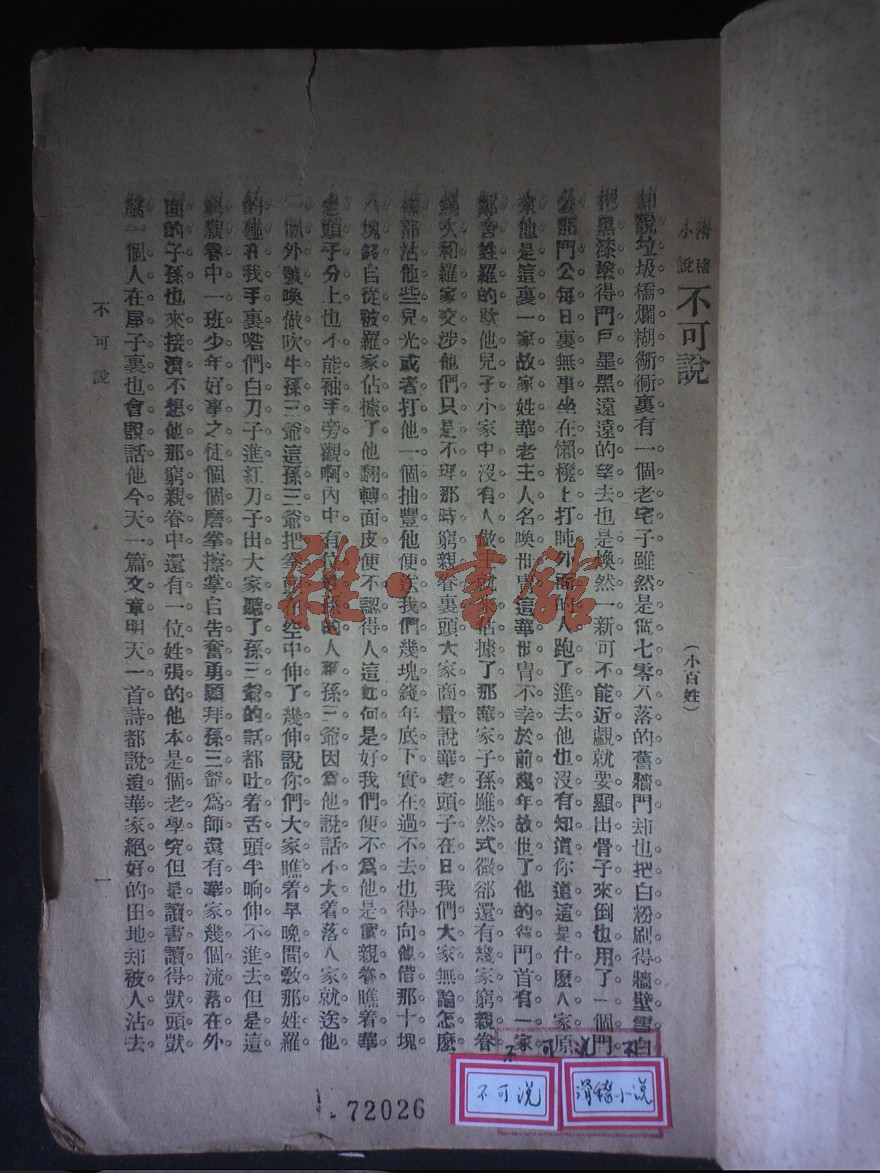 滑稽
小說
不可說
(小百姓)
却說垃圾橋爛糊衖衕裏有一個老宅子雖然是個七零八落的舊牆門却也把白粉刷得牆壁雪白
把黑漆搽得門戶墨黑遠遠的望去也是煥然一新可不能近觀就要顯出骨子來倒也用了一個門
公那門公每日裏無事坐在懶櫈上打盹外面的人跑了進去他也沒有知道你道這是什麼人家原
來他是這裏一家故家姓華老主人名喚世冑這華世冑不幸於前幾年故世了他的門首有一家
鄰舍姓羅的欺他兒子小家中沒有人做主佔據了那華家子孫雖然式微却還有幾家窮親眷
幾次和羅家交涉他們只是不理那時窮親眷裏頭大家商量說華老頭子在日我們大家無論怎麼
樣都沾他些兒光或者打他一個抽豐他便送我們幾塊錢年底下實在過不去也得向他借那十塊
八塊錢自從被羅家佔據了他翻轉面皮便不認得人這如何是好我們便不爲他是個親眷瞧着華
老頭子分上也不能袖手旁觀啊內中有位姓孫的人稱孫三爺因爲他說話不大着落人家就送他
一個外號喚做吹牛孫三爺這孫三爺把拳頭在空中伸了幾伸說你們大家瞧着早晚間教那姓羅
的碰在我手裏喒們白刀子進紅刀子出大家聽了孫三爺的話都吐着舌頭半晌伸不進去但是這
窮親眷中一班少年好事之徒個個磨拳擦掌自告奮勇願拜孫三爺爲師還有華家幾個流落在外
面的子孫也來接濟不想他那窮親眷中還有一位姓張的他本是個老學究但是讀書讀得獃頭獃
腦一個人在屋子裏也會說話他今天一篇文章明天一首詩都說這華家絕好的田地却被人沾去
不可說
一
雜·書館
72026
不可说
滑稽小说